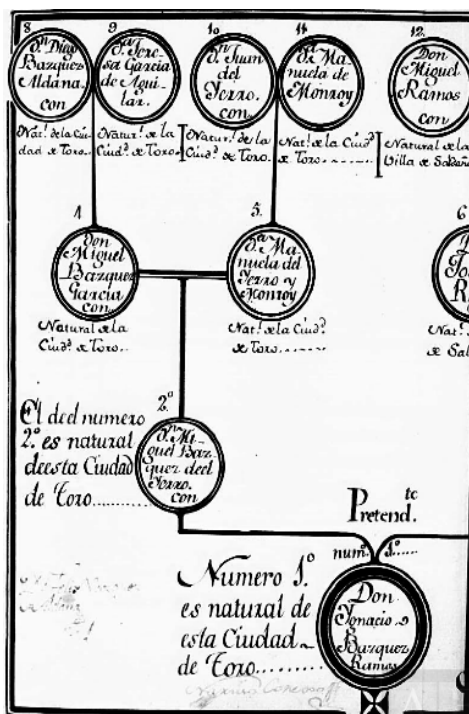 8
Dⁿ Diego
Bazquez
Aldana.
con
Nat.¹ de la Ciu-
dad de Toro..
9
D.ª Tere-
sa Garcia
de Agui-
lar.
Natur.¹ de la
Ciud.ᵈ de Toro..
10
Dⁿ Juan
del
Yerro.
con
Natur.¹ de la
Ciud.ᵈ de Toro.
11
D.ª Ma-
nuela de
Monroy
Nat.¹ de la Ciud.ᵈ
de Toro
12.
Don
Miguel
Ramos
con
Natural de la
Villa de Saldaña
4
Don
Miguel
Bazquez
Garcia
con
Natural de la
Ciud.ᵈ de Toro..
5.
D.ª Ma-
nuela del
Yerro y
Monroy
Nat.¹ de la Ciud.ᵈ
de Toro
6
Nat.
de Sal
El del numero
2.º es natural
de esta Ciudad
de Toro
2.º
Dⁿ Mi-
guel Baz-
quez del
Yerro.
con
Pretend.ᵗᵉ
num.º 1.º
Numero 1.º
es natural de
esta Ciudad
de Toro
Don
Ignacio
Bazquez
Ramos